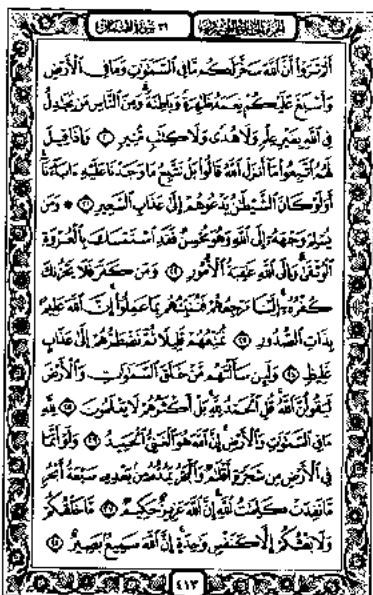 الجزء الحادي والعشرون ٣١ سورة لقمان
أَلَمْ تَرَوْا۟ أَنَّ ٱللَّهَ سَخَّرَ لَكُم مَّا فِى ٱلسَّمَـٰوَٰتِ وَمَا فِى ٱلْأَرْضِ
وَأَسْبَغَ عَلَيْكُمْ نِعَمَهُۥ ظَـٰهِرَةً وَبَاطِنَةً وَمِنَ ٱلنَّاسِ مَن يُجَـٰدِلُ
فِى ٱللَّهِ بِغَيْرِ عِلْمٍ وَلَا هُدًى وَلَا كِتَـٰبٍ مُّنِيرٍ ٢٠ وَإِذَا قِيلَ
لَهُمُ ٱتَّبِعُوا۟ مَآ أَنزَلَ ٱللَّهُ قَالُوا۟ بَلْ نَتَّبِعُ مَا وَجَدْنَا عَلَيْهِ ءَابَآءَنَآ
أَوَلَوْ كَانَ ٱلشَّيْطَـٰنُ يَدْعُوهُمْ إِلَىٰ عَذَابِ ٱلسَّعِيرِ ٢١ ۞ وَمَن
يُسْلِمْ وَجْهَهُۥٓ إِلَى ٱللَّهِ وَهُوَ مُحْسِنٌ فَقَدِ ٱسْتَمْسَكَ بِٱلْعُرْوَةِ
ٱلْوُثْقَىٰ وَإِلَى ٱللَّهِ عَـٰقِبَةُ ٱلْأُمُورِ ٢٢ وَمَن كَفَرَ فَلَا يَحْزُنكَ
كُفْرُهُۥٓ إِلَيْنَا مَرْجِعُهُمْ فَنُنَبِّئُهُم بِمَا عَمِلُوٓا۟ إِنَّ ٱللَّهَ عَلِيمٌۢ
بِذَاتِ ٱلصُّدُورِ ٢٣ نُمَتِّعُهُمْ قَلِيلًا ثُمَّ نَضْطَرُّهُمْ إِلَىٰ عَذَابٍ
غَلِيظٍ ٢٤ وَلَئِن سَأَلْتَهُم مَّنْ خَلَقَ ٱلسَّمَـٰوَٰتِ وَٱلْأَرْضَ
لَيَقُولُنَّ ٱللَّهُ قُلِ ٱلْحَمْدُ لِلَّهِ بَلْ أَكْثَرُهُمْ لَا يَعْلَمُونَ ٢٥ لِلَّهِ
مَا فِى ٱلسَّمَـٰوَٰتِ وَٱلْأَرْضِ إِنَّ ٱللَّهَ هُوَ ٱلْغَنِىُّ ٱلْحَمِيدُ ٢٦ وَلَوْ أَنَّمَا
فِى ٱلْأَرْضِ مِن شَجَرَةٍ أَقْلَـٰمٌ وَٱلْبَحْرُ يَمُدُّهُۥ مِنۢ بَعْدِهِۦ سَبْعَةُ أَبْحُرٍ
مَّا نَفِدَتْ كَلِمَـٰتُ ٱللَّهِ إِنَّ ٱللَّهَ عَزِيزٌ حَكِيمٌ ٢٧ مَّا خَلْقُكُمْ
وَلَا بَعْثُكُمْ إِلَّا كَنَفْسٍ وَٰحِدَةٍ إِنَّ ٱللَّهَ سَمِيعٌۢ بَصِيرٌ ٢٨
٤١٣